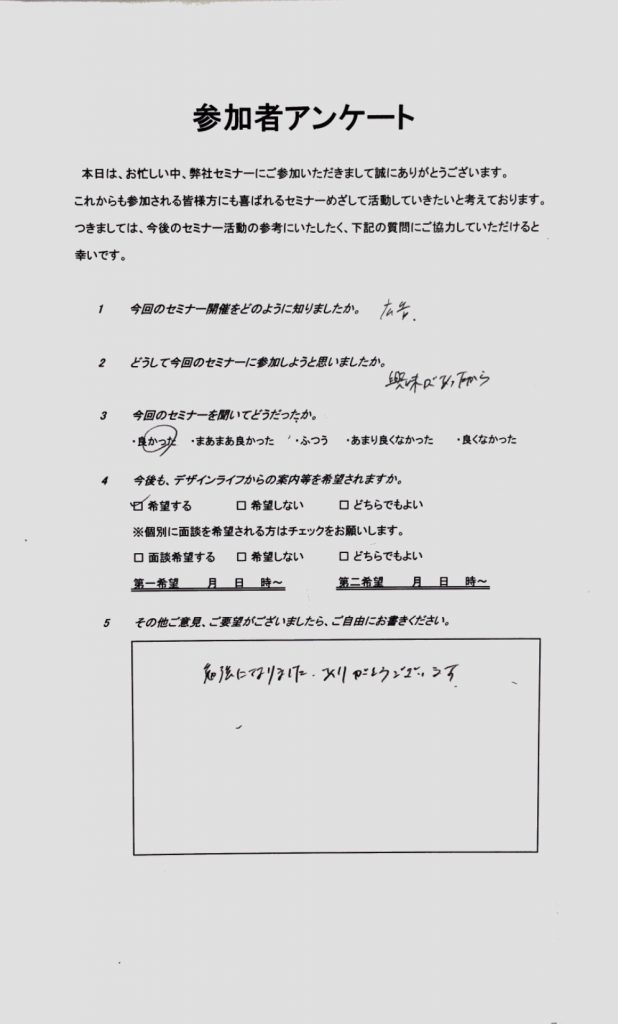 参加者アンケート
本日は、お忙しい中、弊社セミナーにご参加いただきまして誠にありがとうございます。
これからも参加される皆様方にも喜ばれるセミナーめざして活動していきたいと考えております。
つきましては、今後のセミナー活動の参考にいたしたく、下記の質問にご協力していただけると
幸いです。
1 今回のセミナー開催をどのように知りましたか。 広告.
2 どうして今回のセミナーに参加しようと思いましたか。
興味があったから
3 今回のセミナーを聞いてどうだったか。
・良かった ・まあまあ良かった ・ふつう ・あまり良くなかった ・良くなかった
4 今後も、デザインライフからの案内等を希望されますか。
☑ 希望する □ 希望しない □ どちらでもよい
※個別に面談を希望される方はチェックをお願いします。
□ 面談希望する □ 希望しない □ どちらでもよい
第一希望 月 日 時~ 第二希望 月 日 時~
5 その他ご意見、ご要望がございましたら、ご自由にお書きください。
勉強になりました.ありがとうございます